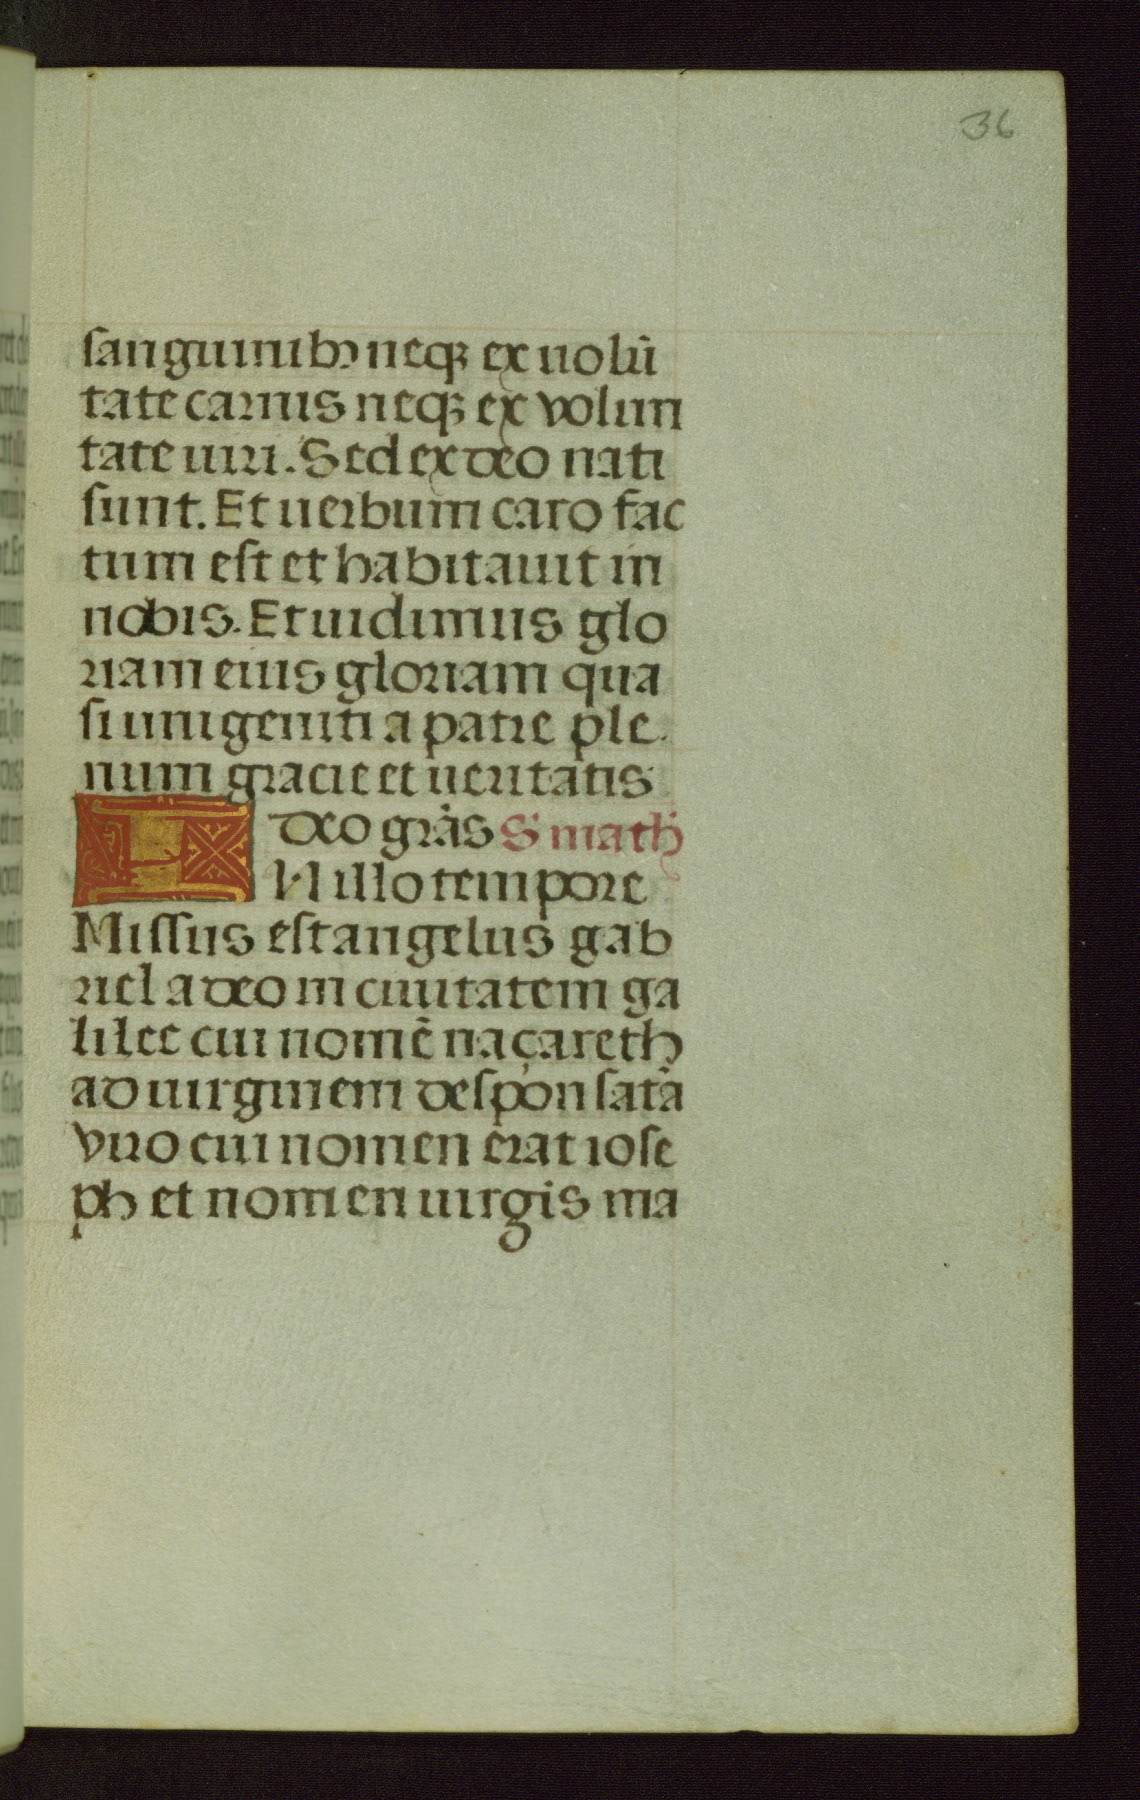 36
sanguinibꝰ neqꝫ ex uolū
tate carnis neqꝫ ex volun
tate uiri. Sed ex deo nati
sunt. Et uerbum caro fac
tum est et habitauit in
nobis. Et uidimus glo
riam eius gloriam qua
si unigeniti a patre ple.
num gracie et ueritatis
deo grās S math
IN illo tempore
Missus est angelus gab
riel a deo in ciuitatem ga
lilee cui nomē naçareth
ad uirginem desponsatā
viro cui nomen erat iose
ph et nomen uirgis ma